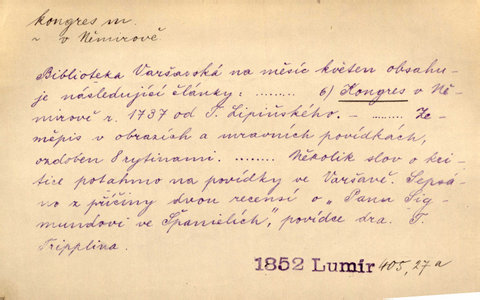 kongres m.
~ v Němirově.
Biblioteka Varšavská na měsíc květen obsahu-
je následující články: ......... 6) Kongres v Ně-
mirově r. 1737 od T. Lipiňského. – ......... Ze-
měpis v obrazích a mravních povídkách,
ozdoben 8 rytinami. ......... Několik slov o kri-
tice potahmo na povídky ve Varšavě. Sepsá-
no z příčiny dvou recensí o „Panu Sig-
mundovi ve Španielích", povídce dra. T.
Tripplina.
1852 Lumír 405, 27 a